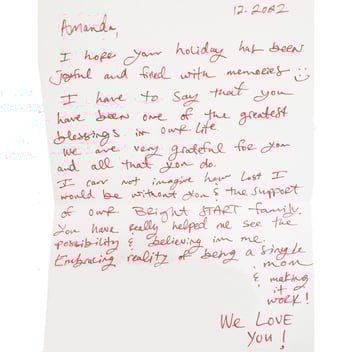 12.2022
Amanda,
I hope your holiday has been
joyful and filled with memories :)
I have to say that you
have been one of the greatest
blessings in our life.
We are very grateful for you
and all that you do.
I can not imagine how lost I
would be without you & the support
of our Bright START family.
You have really helped me see the
possibility & believing in me.
Embracing reality of being a single
mom
& making
it
work!
We LOVE
you!